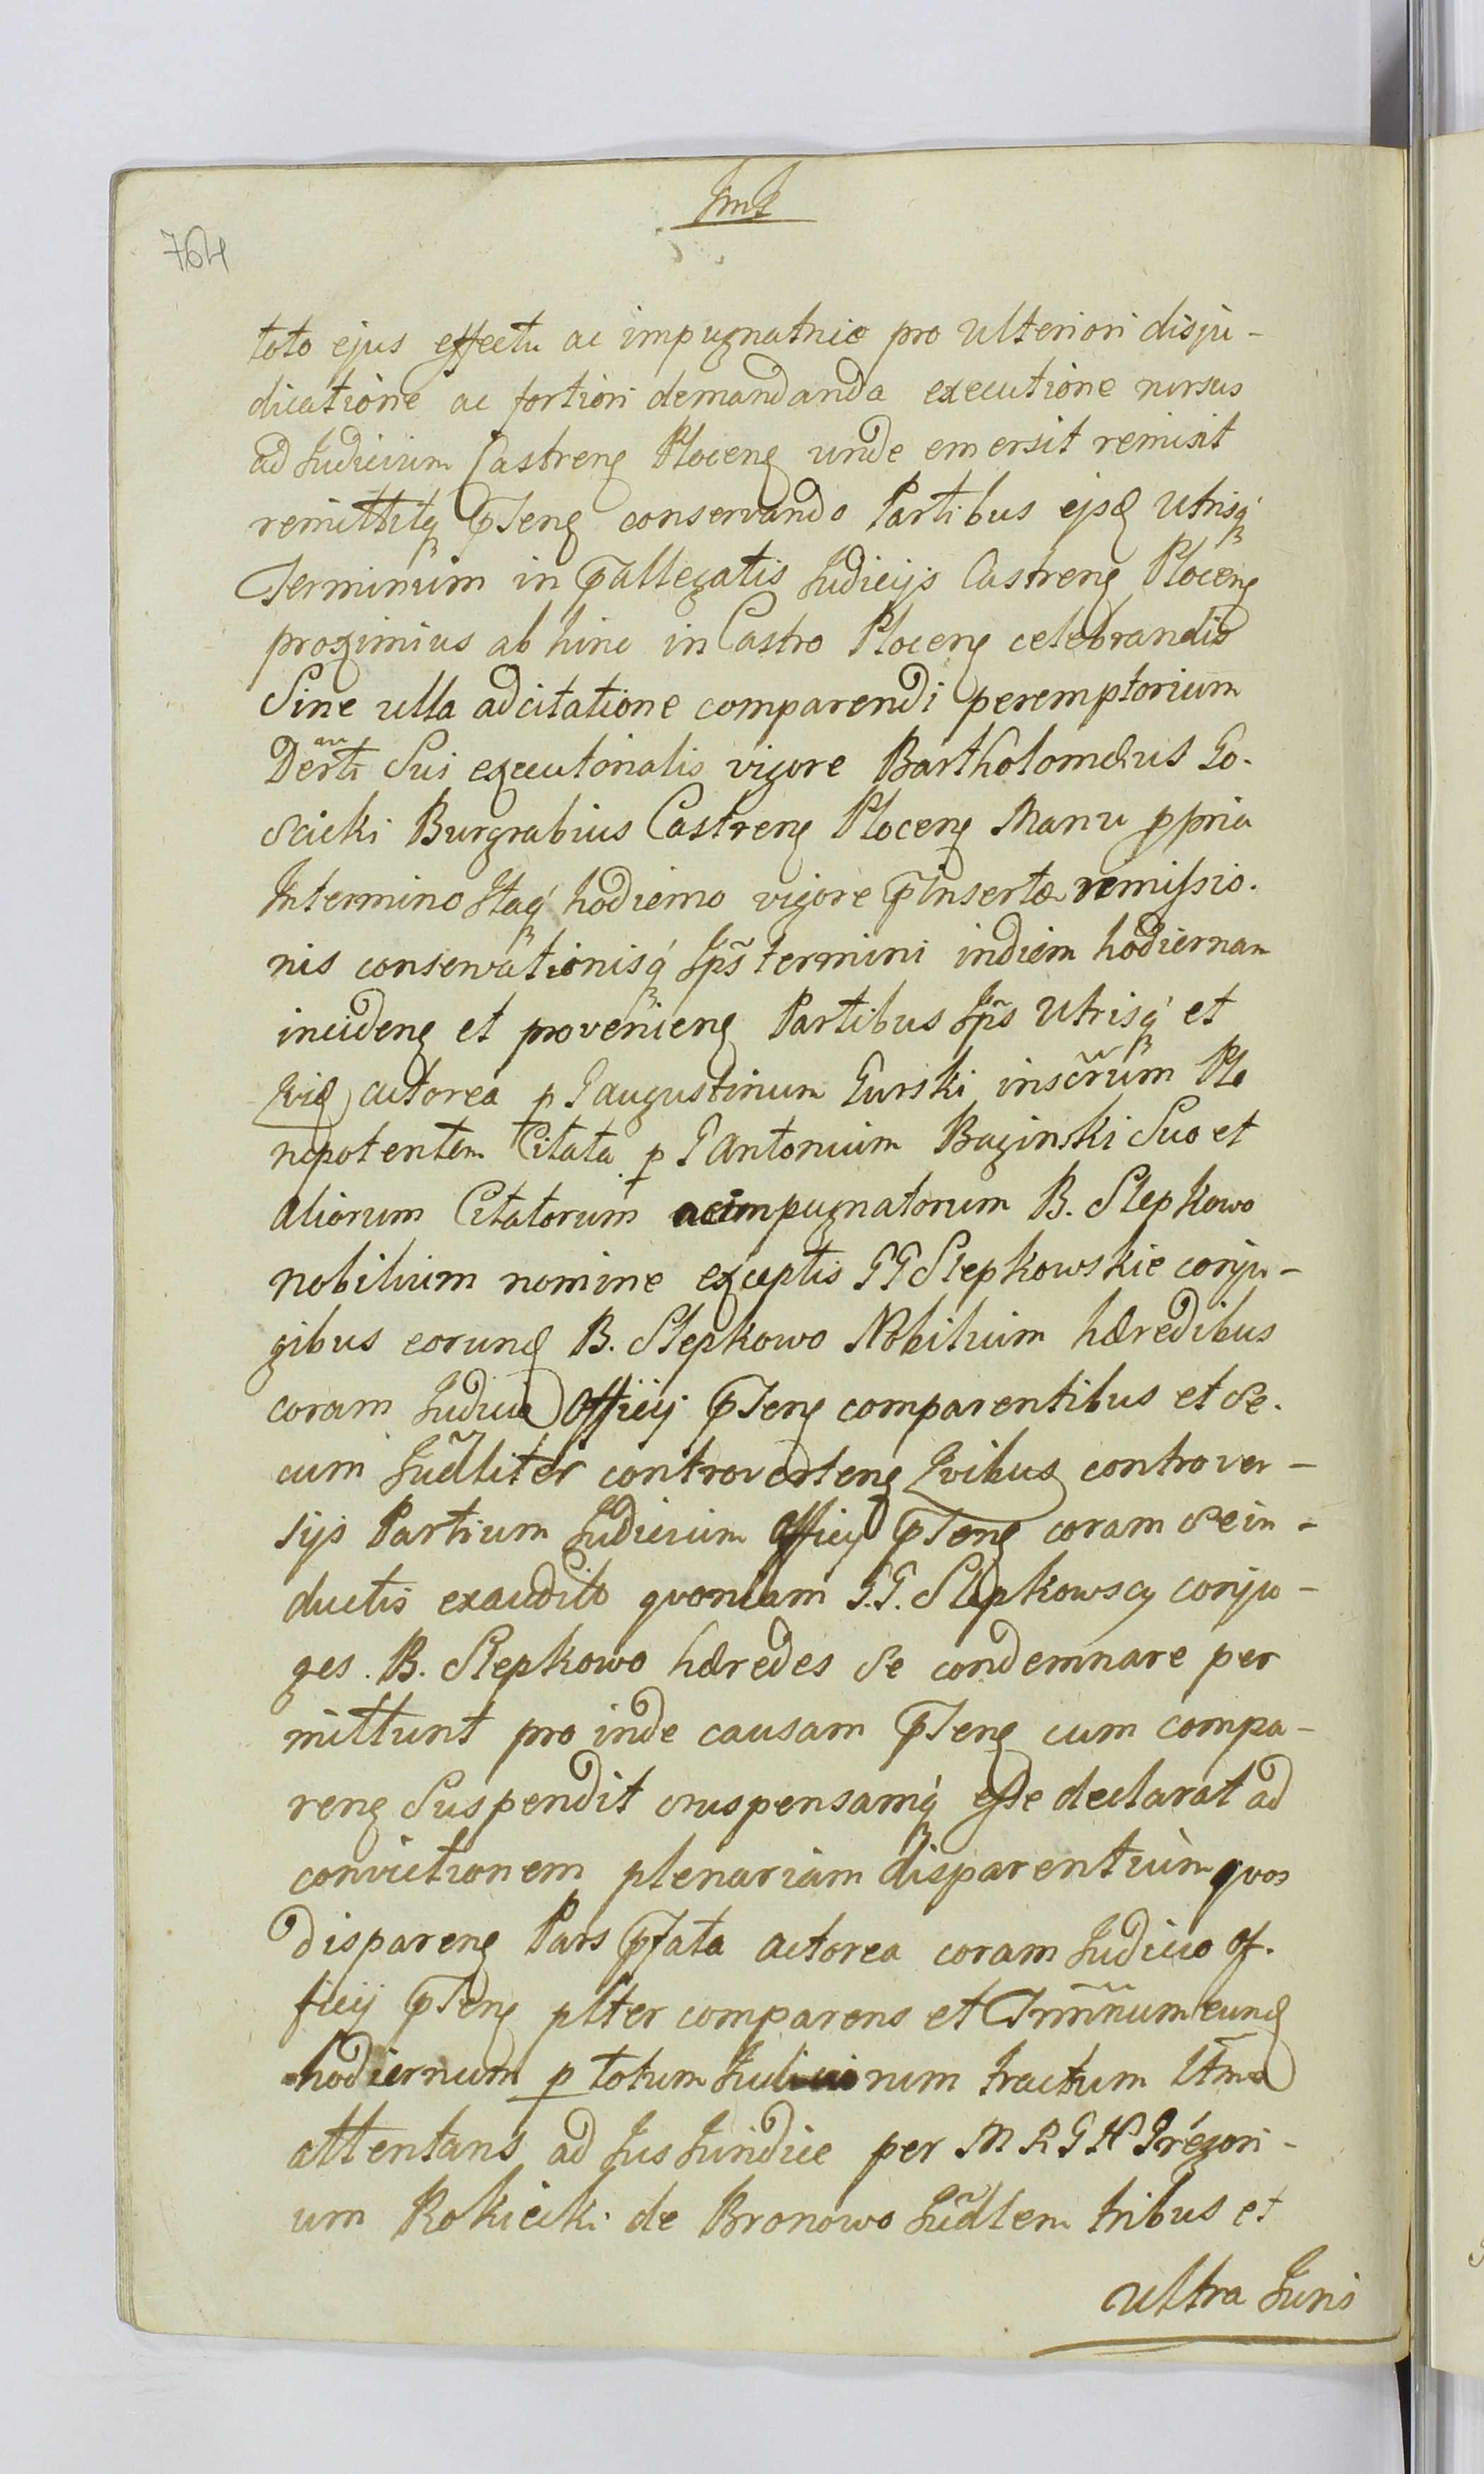 764
toto ejus effectu ac impugnatnio pro ulteriori disju-
dicatione ac fortiori demandanda executione rursus
ad Judicium Castren Plocen unde emersit remisit
remittitq pnten conservando Partibus ejsd utrisq
Terminum in pallegatis Judicijs Castren Plocen
proximius ab hinc in Castro Plocen celebrandis
Sine ulla adcitatione comparendi peremptorium
Derti Sui executorialis vigore Bartholomæus Go-
scicki Burgrabius Castren Plocen Manu ppria
In termino Itaq hodierno vigore pinsertæ remissio-
nis conservationisq Ips termini in diem hodiernam
inciden et provenien Partibus Ips Utrisq et
Qvid actorea p G augustinum Gurski inscrum Ple
nipotentem Citata p G Antonium Baginski Suo et
aliorum Citatorum ac impugnatorum B. Slepkowo
nobilium nomine exceptis GG Slepkowskie conju-
gibus eorund B. Slepkowo Nobilium hæredibus
coram Judicio Officij pnten comparentibus et se-
cum Judliter controverten Qvibus controver-
sijs Partium Judicium Officij pnten coram se in-
ductis exaudito qvoniam G.G. Slepkowscy conju-
ges. B. Slepkowo hæredes se condemnare per
mittunt pro inde causam pnten cum compa-
ren Suspendit suspensamq esse declarat ad
convictionem plenariam disparentium qvos
disparen Pars pfata actorea coram Judicio Of-
ficij pnten plter comparens et Trmnum eund
hodiernum p totum Judiciorum tractum ltme
attentans ad Jus Juridice per M R G N Gregori-
um Rokicki de Bronowo Judlem tribus et
ultra Juris